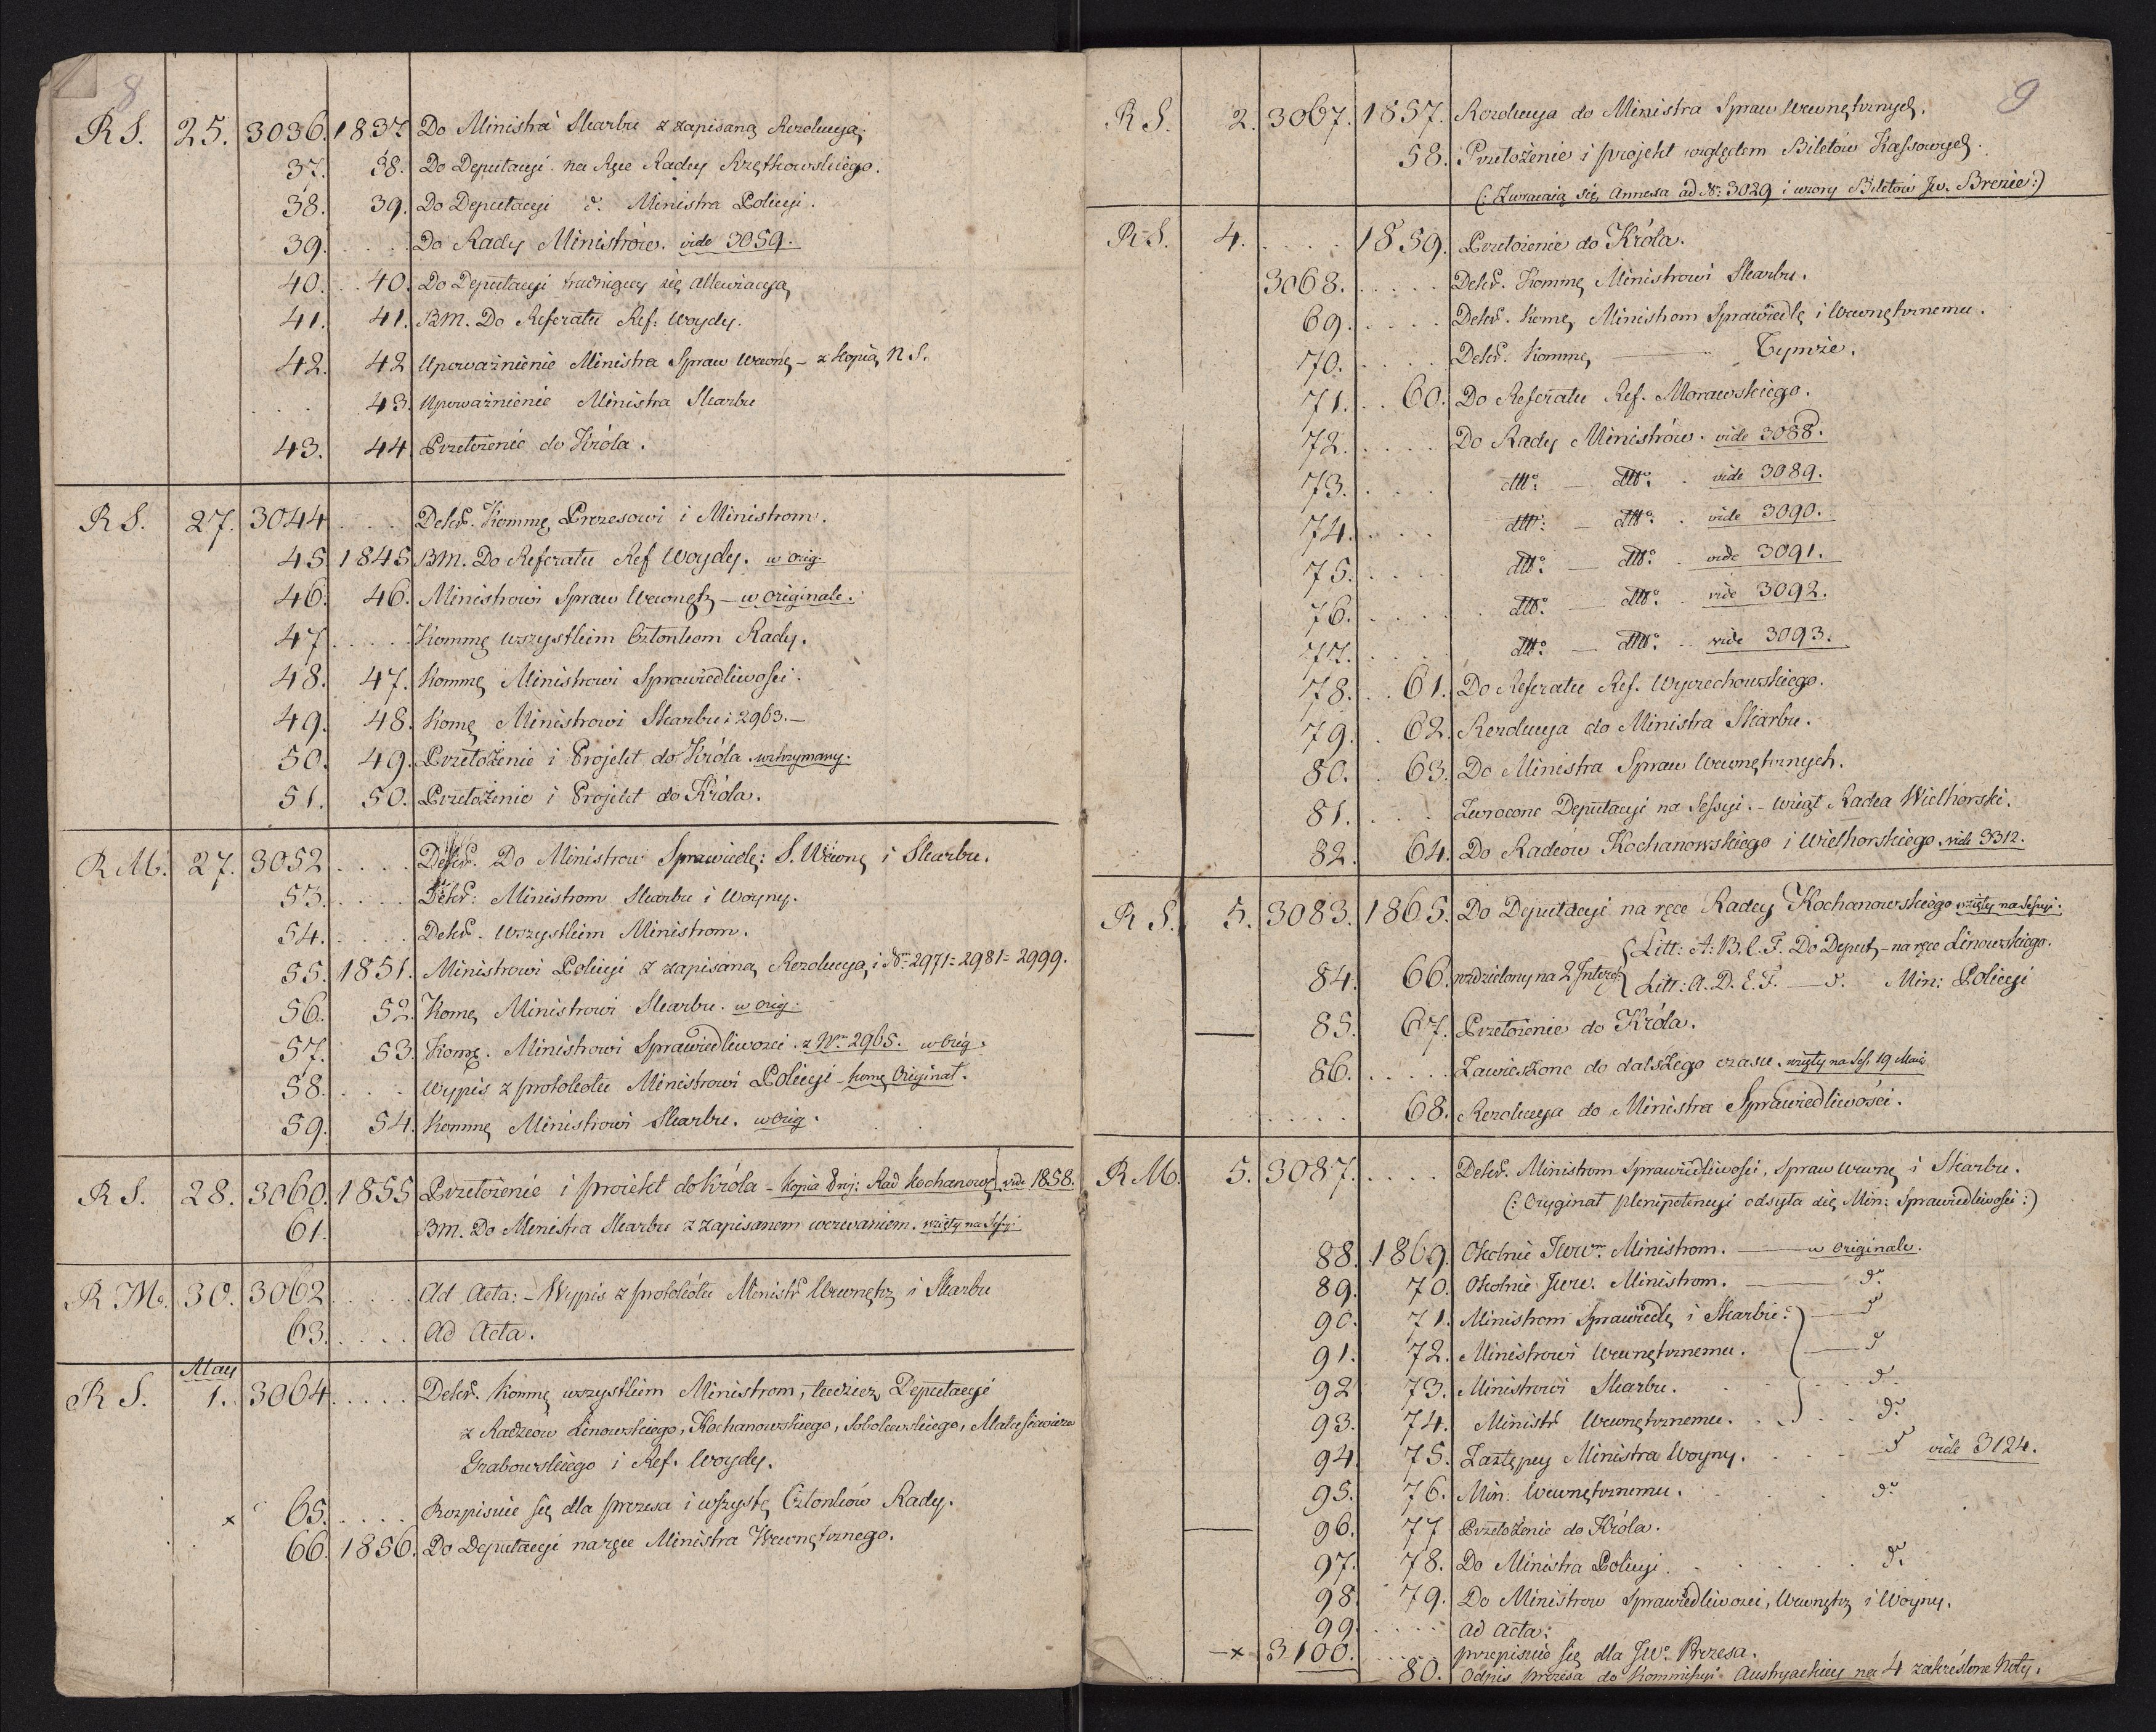 8
R S. 25. 3036. 1837 Do Ministra Skarbu z zapisaną Rezolucyą.
37. 38. Do Deputacyi na Ręce Radcy Rzętkowskiego.
38. 39. Do Deputacyi d: Ministra Policyi.
39. . . . . Do Rady Ministrów. vide 3059.
40. . . 40. Do Deputacyi trudniącey się allewiacyą
41. 41. BM. Do Referatu Ref: Woydy.
42. 42 Upoważnienie Ministra Spraw Wewnę – z kopią N S.
. . . 43. Upoważnienie Ministra Skarbu
43. 44 Przełożenie do Króla.
R S. 27. 3044 . . . Dekr. Kommę Prezesowi i Ministrom.
45 1845 BM. Do Referatu Ref Woydy. w orig.
46. 46. Ministrowi Spraw Wewnętz – w originale.
47 . . . . . Kommę wszystkim Członkom Rady.
48. 47. Kommę Ministrowi Sprawiedliwości.
49. 48. Komę Ministrowi Skarbu i 2963. –
50. 49. Przełożenie i Projekt do Króla. wstrzymany.
51. 50. Przełożenie i Projekt do Króla.
R M. 27. 3052 . . . . Dekr. Do Ministrów Sprawiedlę: S. Wewnę i Skarbu.
53. . . . . Dekr: Ministrom Skarbu i Woyny.
54. . . . . Dekr. Wszystkim Ministrom.
55. 1851. Ministrowi Policyi z zapisaną Rezolucyą i Nr 2971 = 2981 = 2999.
56. 52. Komę Ministrowi Skarbu. w orig:
57. 53. Komę. Ministrowi Sprawiedliwości. z Nrm 2965. w orig.
58. . . . Wypis z protokółu Ministrowi Policyi – komę Originał.
59. 54. Kommę Ministrowi Skarbu. w orig.
R S. 28. 3060. 1855 Przełożenie i projekt do Króla – kopia Rad Kochanowę vide 1858.
61. BM. Do Ministra Skarbu z zapisanem wezwaniem. wzięty na Sessyi
R M. 30. 3062 . . . . Ad Acta: – Wypis z protokółu Ministr Wewnętz i Skarbu
63. . . . . Ad Acta.
May
R S. 1. 3064 . . . . . Dekr. Kommę wszystkim Ministrom, tudzież Deputacyi
z Radzców Linowskiego, Kochanowskiego, Sobolewskiego,
Grabowskiego i Ref. Woydy.
x 65. . . . . Rozpisuie się dla prezesa i wszystę Członków Rady.
66. 1856. Do Deputacyi na ręce Ministra Wewnętrznego.
9
R S. 2. 3067. 1857. Rezolucya do Ministra Spraw Wewnętrznych.
58. Przełożenie i projekt względem Biletów Kassowych.
(: Zwracaią się Annexa ad Nr: 3029 i wzory Biletów Jw. Brezie :)
R S. 4. . . . . 1859. Przełożenie do Króla.
3068. . . . . . Dekr. Kommę Ministrowi Skarbu.
69. . . . . Dekr. Komę Ministrom Sprawiedlę i Wewnętrznemu.
70. . . . . Dekr. Kommę ——— Tymże.
71. . . 60. Do Referatu Ref. Morawskiego.
72. . . . . Do Rady Ministrów. vide 3088.
73. . . . dtto: — dtto: . vide 3089.
74. . . . dtto: — dtto: . vide 3090.
75. . . . . dtto: — dtto: vide 3091.
76. . . . . . dtto: — dtto: . vide 3092.
77. . . . dtto: — dtto: . vide 3093.
78. . . 61. Do Referatu Ref. Wyczechowskiego.
79. . 62. Rezolucya do Ministra Skarbu.
80. . 63. Do Ministra Spraw Wewnętrznych.
81. . . . Zwrocone Deputacyi na Sessyi. – wziął Radca Wielhorski.
82. 64. Do Radców Kochanowskiego i Wielhorskiego. vide 3312.
R S. 5. 3083. 1865. Do Deputacyi na ręce Radcy Kochanowskiego wzięty na Sessyi.
{ Litt: A: B. C. F. Do Deput – na ręce Linowskiego.
84. 66. rozdzielony na 2 { Litt: A. D. E. F. — d. Min: Policyi
— 85. 67. Przełożenie do Króla.
86. . . . . . Zawieszone do dalszego czasu. wzięty na Ses. 19 Maia
. . . . . 68. Rezolucya do Ministra Sprawiedliwości.
R M. 5. 3087. . . . . Dekr. Ministrom Sprawiedliwości, Spraw Wewnę i Skarbu.
(: Oryginał plenipotencyi odsyła się Min: Sprawiedliwości :)
88. 1869. Okolnie Ministrom. —— w originale.
89. 70. Okolnie Ministrom. —— do.
90. 71. Ministrom Sprawiedlę i Skarbu: } — do
91. 72. Ministrowi Wewnętrznemu. — do
92 73. Ministrowi Skarbu. . . . do.
93. 74. Ministr Wewnętrznemu. . } . . do
94. 75. Zastępcy Ministra Woyny. . . . do vide 3124.
95. 76. Min: Wewnętrznemu. . . . do
— 96. 77 Przełożenie do Króla.
97. 78. Do Ministra Policyi. . . . . do.
98. 79. Do Ministrów Sprawiedliwości, Wewnętz i Woyny.
99. . . . . ad acta:
– x 3100. . . . . . przepisuie się dla JWo. Prezesa.
80. Odpis prezesa do Kommissyi Austryackiey na 4 zakreślone Noty.